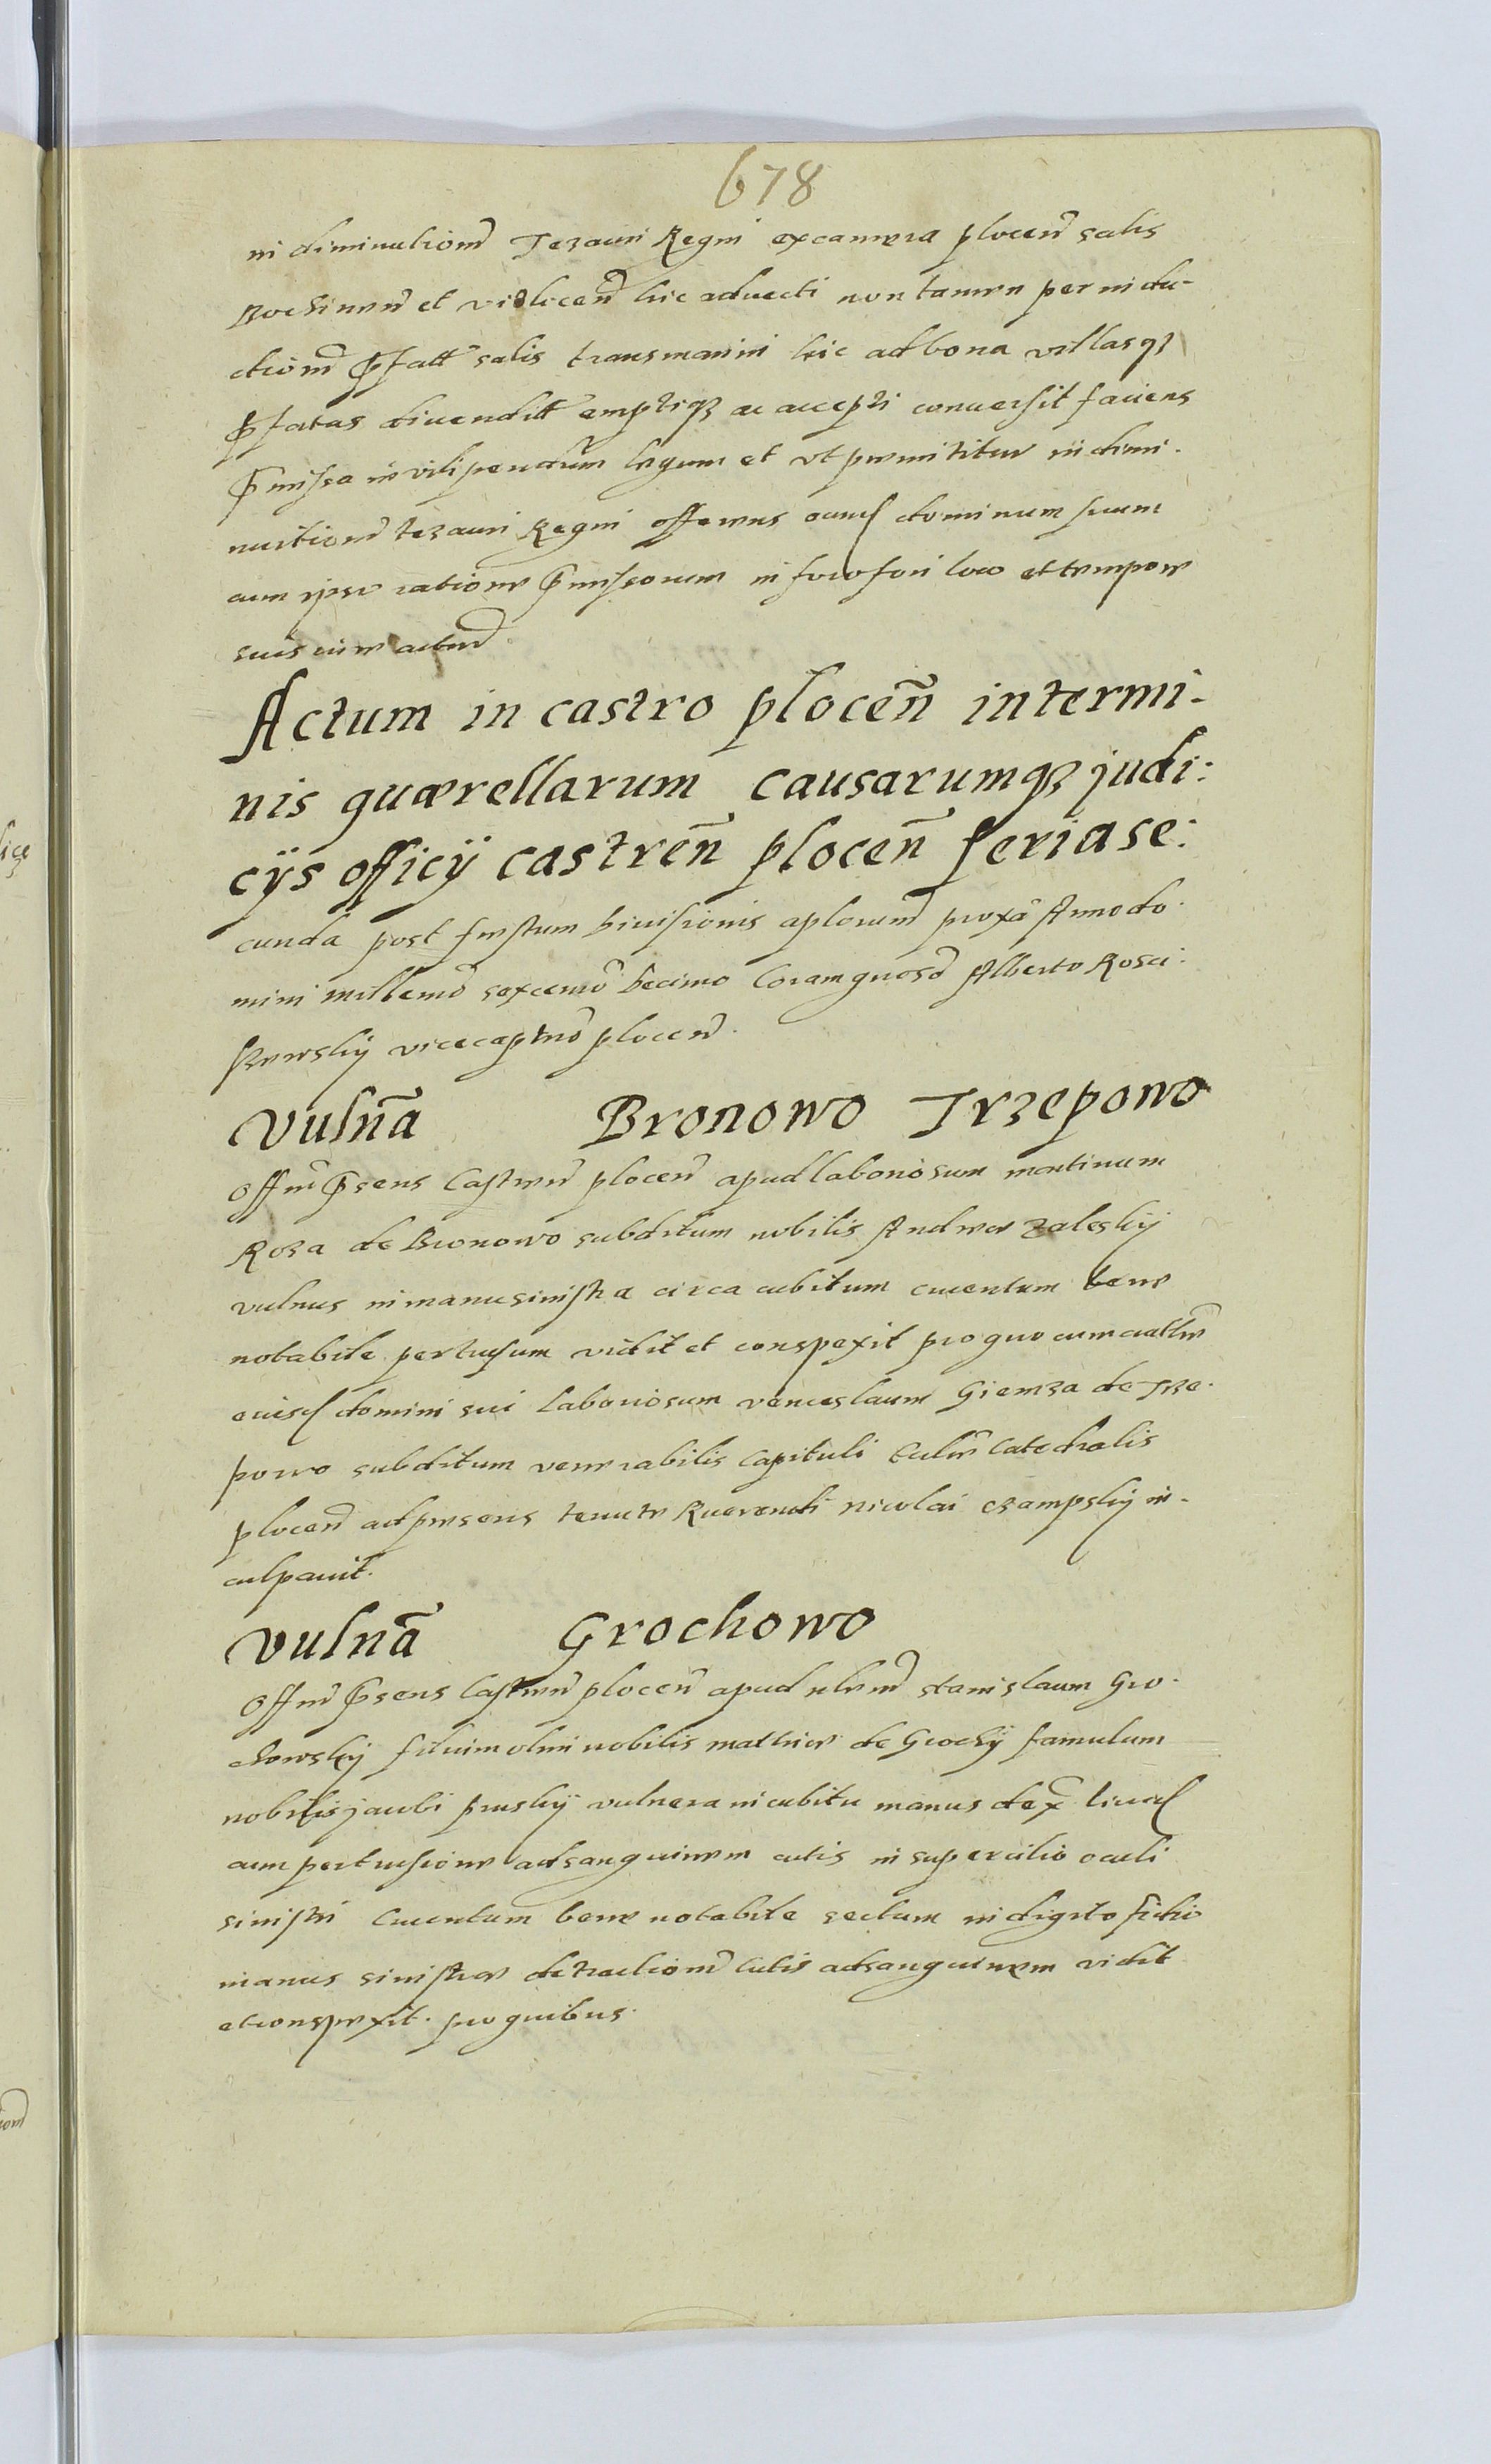 678
in diminutionē Tezauri Regni ex camera plocen̄ salis
Bochinen̄ et vielicen̄ hic aduecti non tamen per indu-
ctionē p̄fatt salis transmarini hic ad bona villasqȝ
p̄fatas diuenditt emptiqȝ ac accepti conuersit faciens
p̄missa in vilipendium legum et vt premititur in dimi-
nutionē tezauri Regni offerens eund dominum suum
cum ratione p̄missorum in foro fori loco et tempore
suis iure acturū
Actum in castro plocen̄ in termi-
nis quærellarum causarumqȝ judi:
cÿs officÿ castren̄ plocen̄ feria se:
cunda post festum diuisionis aplorum proxā Anno do-
mini millemō sexcenmō decimo Coram gnosō Alberto Rosci-
szewskÿ vicecaptnō plocen̄.
Vulnā Bronowo Trzepowo
Offm̄ p̄sens Castren̄ plocen̄ apud laboriosum martinum
Roza de Bronowo subditum nobilis Andreæ Zaleskÿ
vulnus in manu sinistra circa cubitum cruentum bene
notabile pertusum vidit et conspexit pro quo cum
eiusd domini sui laboriosum venceslaum Giemza de Trze-
powo subditum venerabilis Capituli Catedralis
plocen̄ ad præsens tenutæ Reuerendi nicolai czampskÿ in-
culpauit.
Vulnā Grochowo
Offm̄ p̄sens Castren̄ plocen̄ apud stanislaum Gro-
chowskÿ filium olim nobilis mathiæ de Grochÿ famulum
nobilis jacobi pruskÿ vulnera in cubitu manus dex liuid
cum pertusione ad sanguinem cutis in supercilio oculi
sinistri Cruentum bene notabile sectum in digito
manus sinistræ detractionē Cutis ad sanguinem vidit
et conspexit. pro quibus.